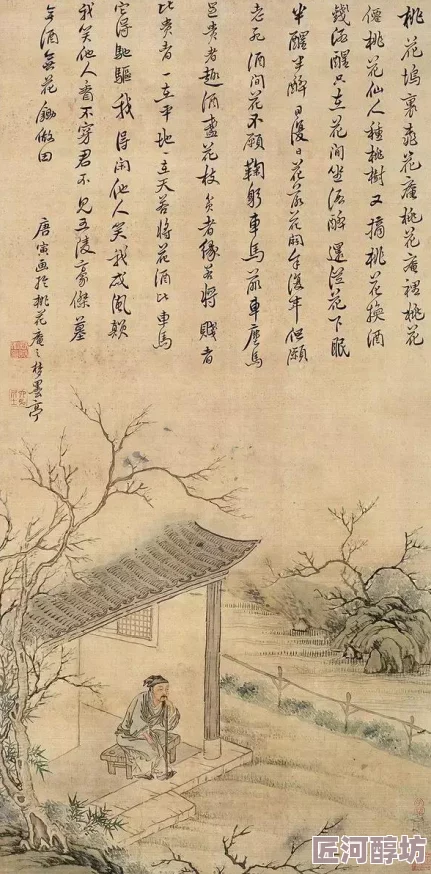 桃花塢裏桃花庵桃花庵裡桃花
僊桃花仙人種桃樹又摘桃花換酒
錢酒醒只在花間坐酒醉還從花下眠
半醒半醉日復日花落花開年復年但願
老死酒間花不願鞠躬車馬前車塵馬
足貴者趣酒盞花枝貧者緣若將賤者
比貴者一在平地一在天若將花酒比車馬
它得馳驅我得閑他人笑我忒風顛
我笑他人看不穿君不見五陵豪傑墓
無酒無花鋤做田
唐寅画於桃花庵之梦墨亭
匠河醇坊